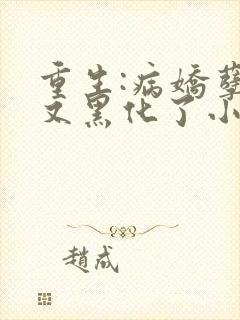 重生:病嬌孽
又黑化了小
趙成